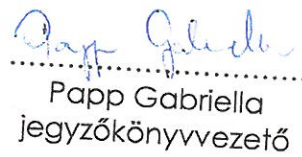 Papp Gabriella
Papp Gabriella
jegyzőkönyvvezető